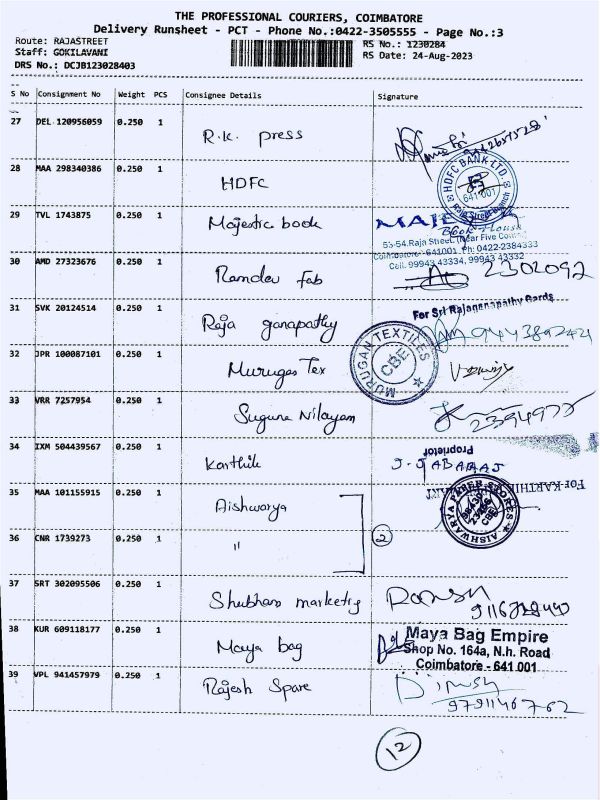 THE PROFESSIONAL COURIERS, COIMBATORE
Delivery Runsheet - PCT - Phone No.:0422-3505555 - Page No.:3
Route: RAJASTREET
RS No.: 1230284
Staff: GOKILAVANI
RS Date: 24-Aug-2023
DRS No.: DCJB123028403
S No Consignment No Weight PCS Consignee Details Signature
27 DEL 120956059 0.250 1 R.K. press
28 MAA 298340386 0.250 1 HDFC
HDFC BANK LTD.
641 001
Raja Street Branch
29 TVL 1743875 0.250 1 Majestic book
Book House
53-54, Raja Street,
Coimbatore - 641001, Ph: 0422-2384333
Cell: 99943 43334, 99943 43332
30 AMD 27323676 0.250 1 Ramdev fab 2302092
31 SVK 20124514 0.250 1 Raja ganapathy
For Sri Rajaganapathy Cards
32 JPR 100087101 0.250 1 Murugas Tex
MURUGAN TEXTILES
CBE
33 VRR 7257954 0.250 1 Suguna Nilayam
34 IXM 504439567 0.250 1 Karthik
Proprietor
For KARTHIK
35 MAA 101155915 0.250 1 Aishwarya
AISHWARYA PAPER STORES
CBE
36 CNR 1739273 0.250 1 "
2
37 SRT 302095506 0.250 1 Shubham marketing
38 KUR 609118177 0.250 1 Maya bag
Maya Bag Empire
Shop No. 164a, N.h. Road
Coimbatore - 641 001
39 VPL 941457979 0.250 1 Rajesh Spare
Dinesh
9791146762
12